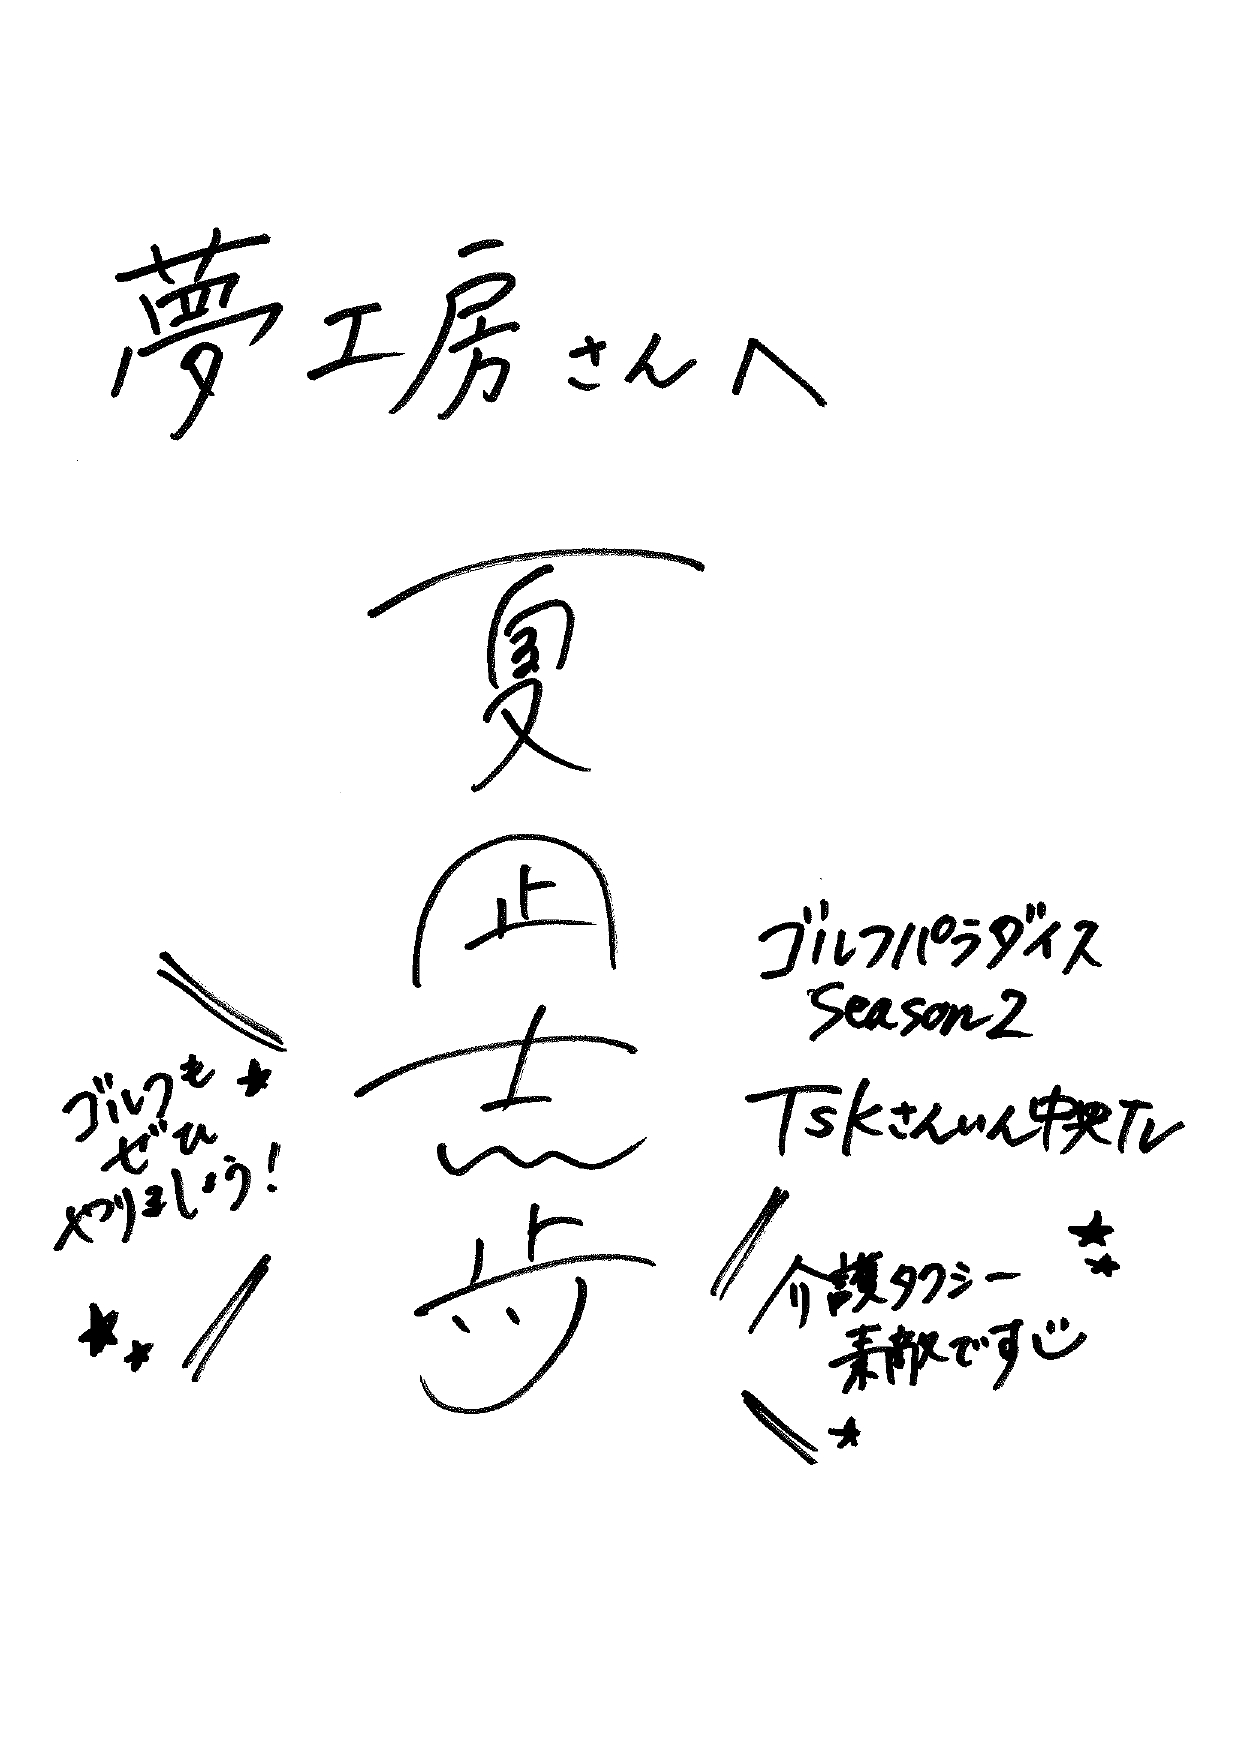 夢工房さんへ
夏
志歩
ゴルフパラダイス
Season2
TSKさんいん中央TV
ゴルフも
ぜひ
やりましょう！
介護タクシー
素敵です